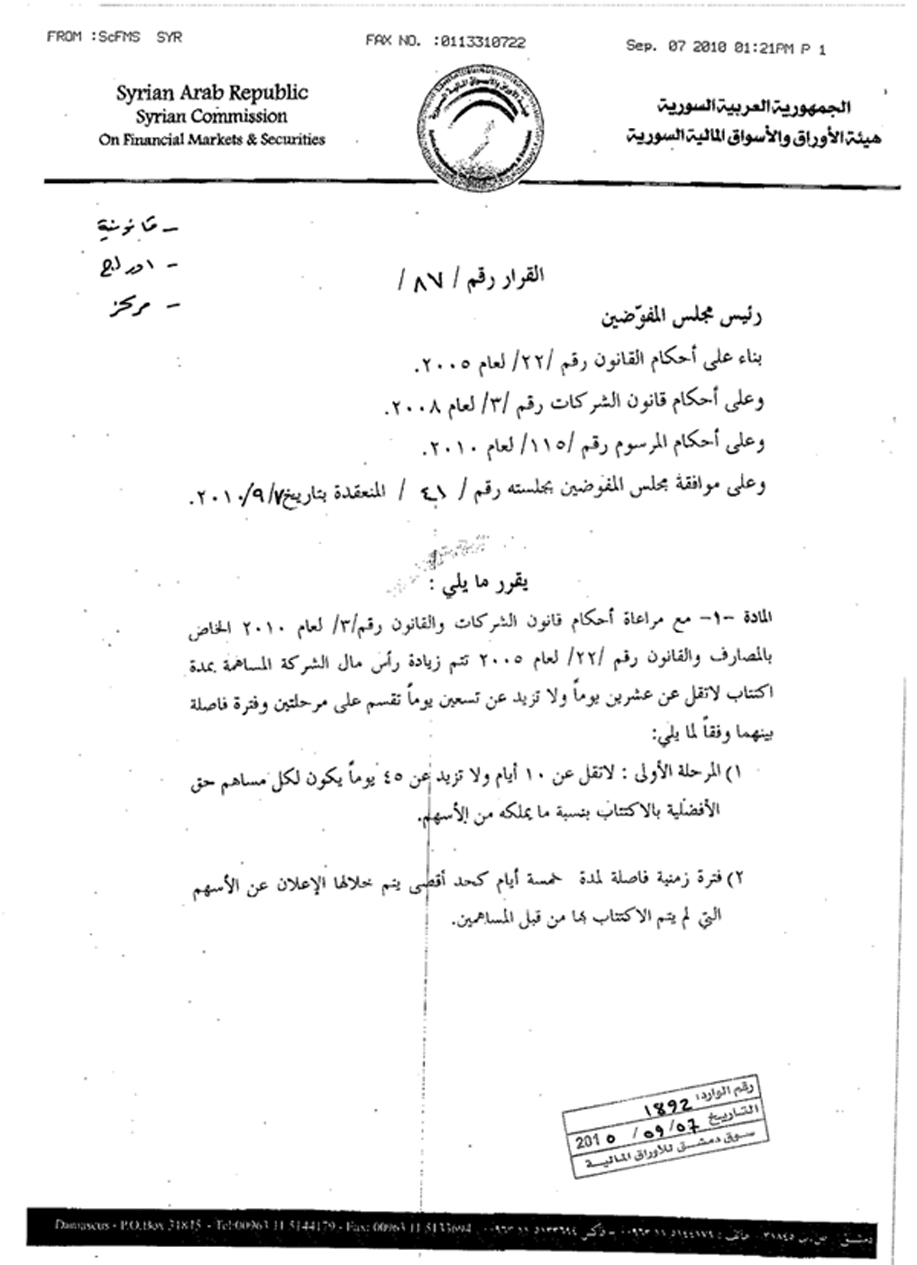 FROM :ScFMS SYR FAX NO. :0113310722 Sep. 07 2010 01:21PM P 1
Syrian Arab Republic
Syrian Commission
On Financial Markets & Securities
الجمهورية العربية السورية
هيئة الأوراق والأسواق المالية السورية
– قانونية
–
– مركز
القرار رقم / ٨٧ /
رئيس مجلس المفوّضين
بناء على أحكام القانون رقم /٢٢/ لعام ٢٠٠٥.
وعلى أحكام قانون الشركات رقم /٣/ لعام ٢٠٠٨.
وعلى أحكام المرسوم رقم /١١٥/ لعام ٢٠١٠.
وعلى موافقة مجلس المفوضين بجلسته رقم / ٤١ / المنعقدة بتاريخ ٢٠١٠/٩/٧.
يقرر ما يلي :
المادة -١- مع مراعاة أحكام قانون الشركات والقانون رقم/٣/ لعام ٢٠١٠ الخاص
بالمصارف والقانون رقم /٢٢/ لعام ٢٠٠٥ تتم زيادة رأس مال الشركة المساهمة بمدة
اكتتاب لاتقل عن عشرين يوماً ولا تزيد عن تسعين يوماً تقسم على مرحلتين وفترة فاصلة
بينهما وفقاً لما يلي:
١) المرحلة الأولى : لاتقل عن ١٠ أيام ولا تزيد عن ٤٥ يوماً يكون لكل مساهم حق
الأفضلية بالاكتتاب بنسبة ما يملكه من الأسهم.
٢) فترة زمنية فاصلة لمدة خمسة أيام كحد أقصى يتم خلالها الإعلان عن الأسهم
التي لم يتم الاكتتاب بها من قبل المساهمين.
رقم الوارد: 1892
التاريخ 2010 / 09 / 07
سوق دمشق للأوراق المالية
Damascus - P.O.Box 31845 - Tel:00963 11 5144179 - Fax: 00963 11 5133694 دمشق - ص.ب ٣١٨٤٥ - هاتف : ٥١٤٤١٧٩ ١١ ٠٠٩٦٣ - فاكس ٥١٣٣٦٩٤ ١١ ٠٠٩٦٣